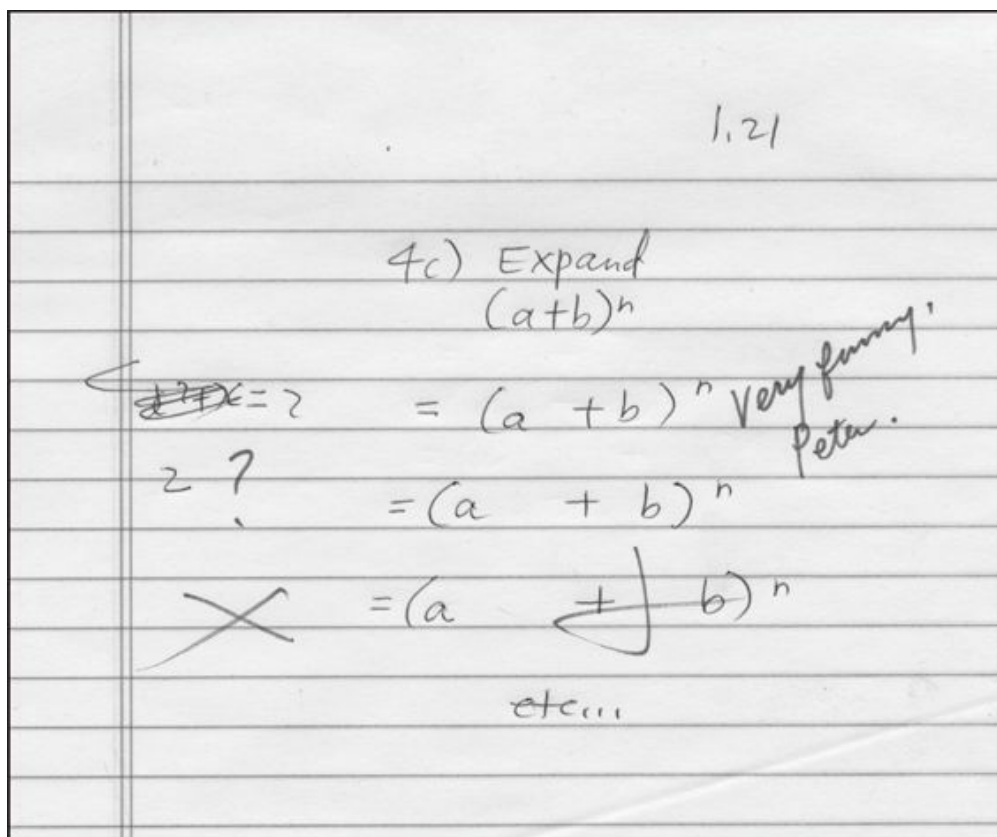 1.21
4c) Expand
(a+b)ⁿ
= 2
= (a + b)ⁿ
Very funny,
Peter.
2 ?
= (a + b)ⁿ
= (a + b)ⁿ
etc...